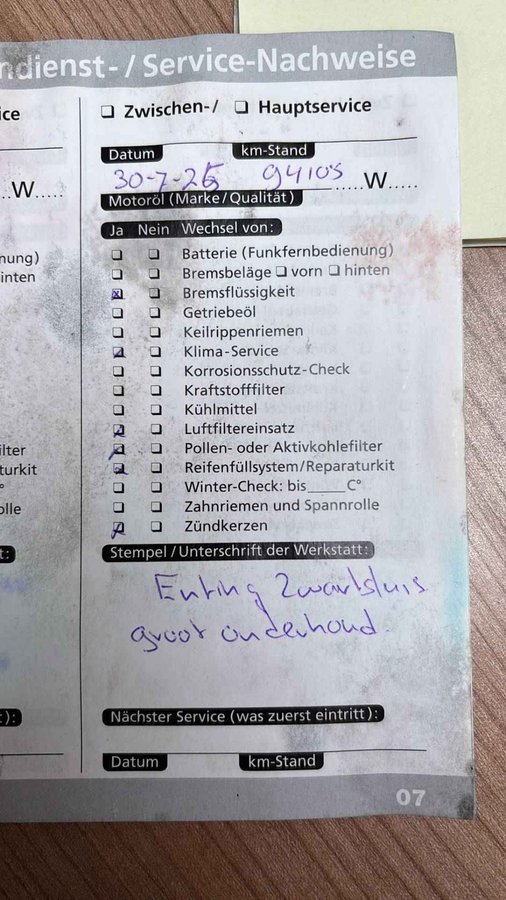 ndienst- / Service-Nachweise
ice
☐ Zwischen-/ ☐ Hauptservice
Datum km-Stand
30-7-25 94105
.....W..... ......W.....
Motoröl (Marke / Qualität)
Ja Nein Wechsel von:
nung) ☐ ☐ Batterie (Funkfernbedienung)
inten ☐ ☐ Bremsbeläge ☐ vorn ☐ hinten
☒ ☐ Bremsflüssigkeit
☐ ☐ Getriebeöl
☐ ☐ Keilrippenriemen
☒ ☐ Klima-Service
☐ ☐ Korrosionsschutz-Check
☐ ☐ Kraftstofffilter
☐ ☐ Kühlmittel
☒ ☐ Luftfiltereinsatz
ilter ☒ ☐ Pollen- oder Aktivkohlefilter
turkit ☒ ☐ Reifenfüllsystem/Reparaturkit
° ☐ ☐ Winter-Check: bis_____C°
olle ☐ ☐ Zahnriemen und Spannrolle
☒ ☐ Zündkerzen
t: Stempel / Unterschrift der Werkstatt:
Enting Zwartsluis
groot onderhoud.
): Nächster Service (was zuerst eintritt):
Datum km-Stand
07